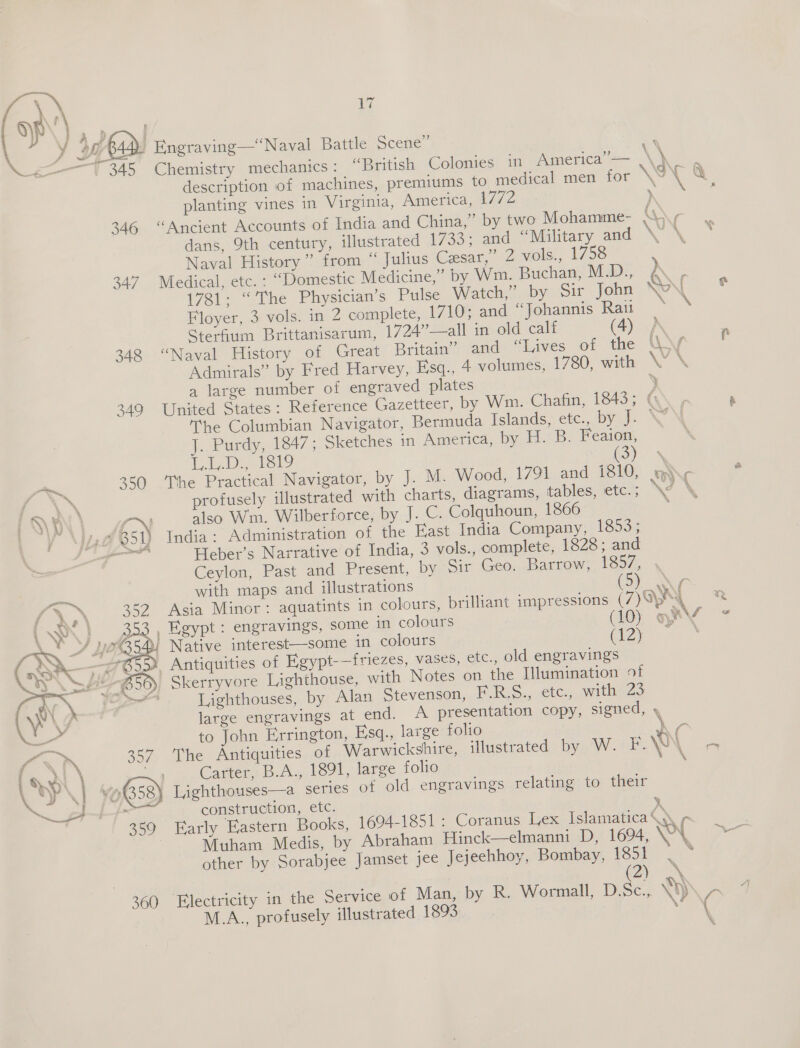 17
344 Engraving—“Naval Battle Scene”
345 Chemistry mechanics: “British Colonies in America”—
description of machines, premiums to medical men for
planting vines in Virginia, America, 1772
346 “Ancient Accounts of India and China,” by two Mohamme-
dans, 9th century, illustrated 1733; and “Military and
Naval History” from “Julius Cæsar,” 2 vols., 1758
347 Medical, etc.: “Domestic Medicine,” by Wm. Buchan, M.D.,
1781; “The Physician’s Pulse Watch,” by Sir John
Floyer, 3 vols. in 2 complete, 1710; and “Johannis Raii
Sterfium Brittanisarum, 1724”—all in old calf (4)
348 “Naval History of Great Britain” and “Lives of the
Admirals” by Fred Harvey, Esq., 4 volumes, 1780, with
a large number of engraved plates
349 United States: Reference Gazetteer, by Wm. Chafin, 1843;
The Columbian Navigator, Bermuda Islands, etc., by J.
J. Purdy, 1847; Sketches in America, by H. B. Feaion,
L.L.D., 1819 (3)
350 The Practical Navigator, by J. M. Wood, 1791 and 1810,
profusely illustrated with charts, diagrams, tables, etc.;
also Wm. Wilberforce, by J. C. Colquhoun, 1866
351 India: Administration of the East India Company, 1853;
Heber’s Narrative of India, 3 vols., complete, 1828; and
Ceylon, Past and Present, by Sir Geo. Barrow, 1857,
with maps and illustrations (5)
352 Asia Minor: aquatints in colours, brilliant impressions (7)
353 Egypt: engravings, some in colours (10)
354 Native interest—some in colours (12)
355 Antiquities of Egypt—friezes, vases, etc., old engravings
356 Skerryvore Lighthouse, with Notes on the Illumination of
Lighthouses, by Alan Stevenson, F.R.S., etc., with 23
large engravings at end. A presentation copy, signed,
to John Errington, Esq., large folio
357 The Antiquities of Warwickshire, illustrated by W. F.
Carter, B.A., 1891, large folio
358 Lighthouses—a series of old engravings relating to their
construction, etc.
359 Early Eastern Books, 1694-1851: Coranus Lex Islamatica
Muham Medis, by Abraham Hinck—elmanni D, 1694,
other by Sorabjee Jamset jee Jejeehhoy, Bombay, 1851
(2)
360 Electricity in the Service of Man, by R. Wormall, D.Sc.,
M.A., profusely illustrated 1893